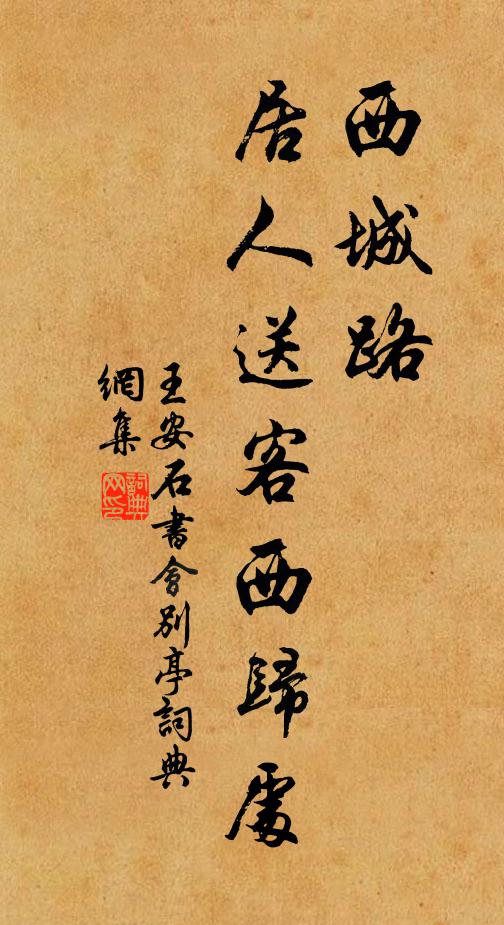 西城路
居人送客西歸處
王安石書會別亭詞典
網集
詞典
網印